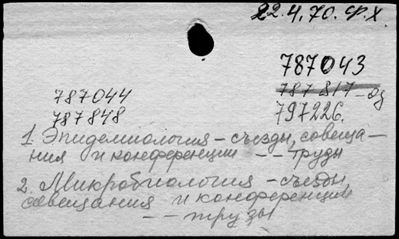 22.4.70. Ф.Х.
787043
787044
787817-Од
787848
797226.
1. Эпидемиология - съезды, совеща-
ния и конференции -- Труды
2. Микробиология - съезды,
совещания и конференции
-- труды